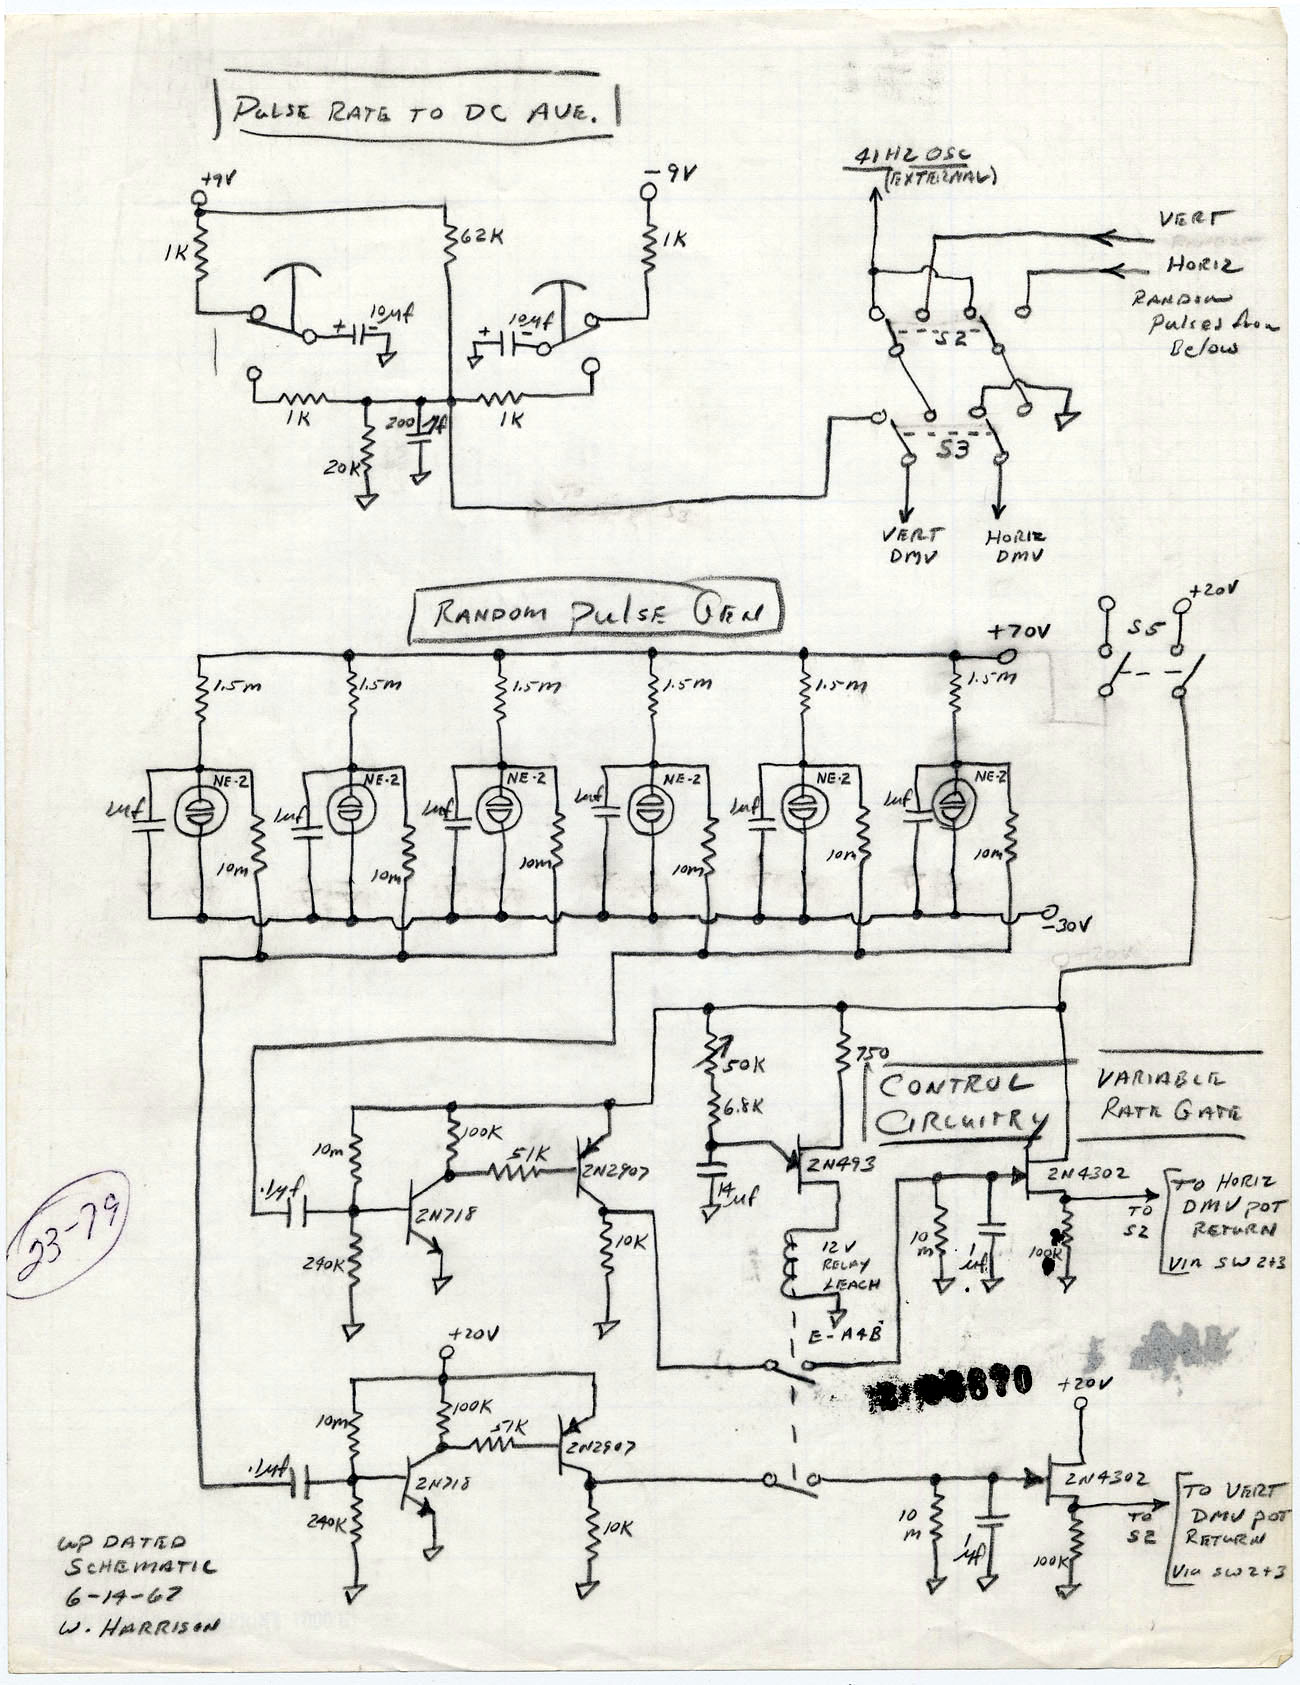 PULSE RATE TO DC AVE.
+9V
-9V
1K
62K
1K
10µf
+
-
10µf
+
-
1K
200µf
1K
20K
41HZ OSC
(EXTERNAL)
VERT
HORIZ
RANDOM
Pulses from
Below
S2
S3
VERT
DMV
HORIZ
DMV
RANDOM PULSE GEN
+70V
+20V
S5
1.5m
1.5m
1.5m
1.5m
1.5m
1.5m
NE-2
NE-2
NE-2
NE-2
NE-2
NE-2
1µf
1µf
1µf
1µf
1µf
1µf
10m
10m
10m
10m
10m
10m
-30V
50K
750
6.8K
CONTROL
CIRCUITRY
VARIABLE
RATE GATE
10m
100K
51K
2N2907
2N493
2N4302
.1µf
2N718
14µf
240K
10K
12V
RELAY
LEACH
E-A4B
10
m
1µf
100K
TO
S2
TO HORIZ
DMV POT
RETURN
VIA SW 2+3
23-79
+20V
+20V
10m
100K
51K
2N2907
.1µf
2N718
240K
10K
10
m
1µf
2N4302
100K
TO
S2
TO VERT
DMV POT
RETURN
VIA SW 2+3
UPDATED
SCHEMATIC
6-14-67
W. HARRISON